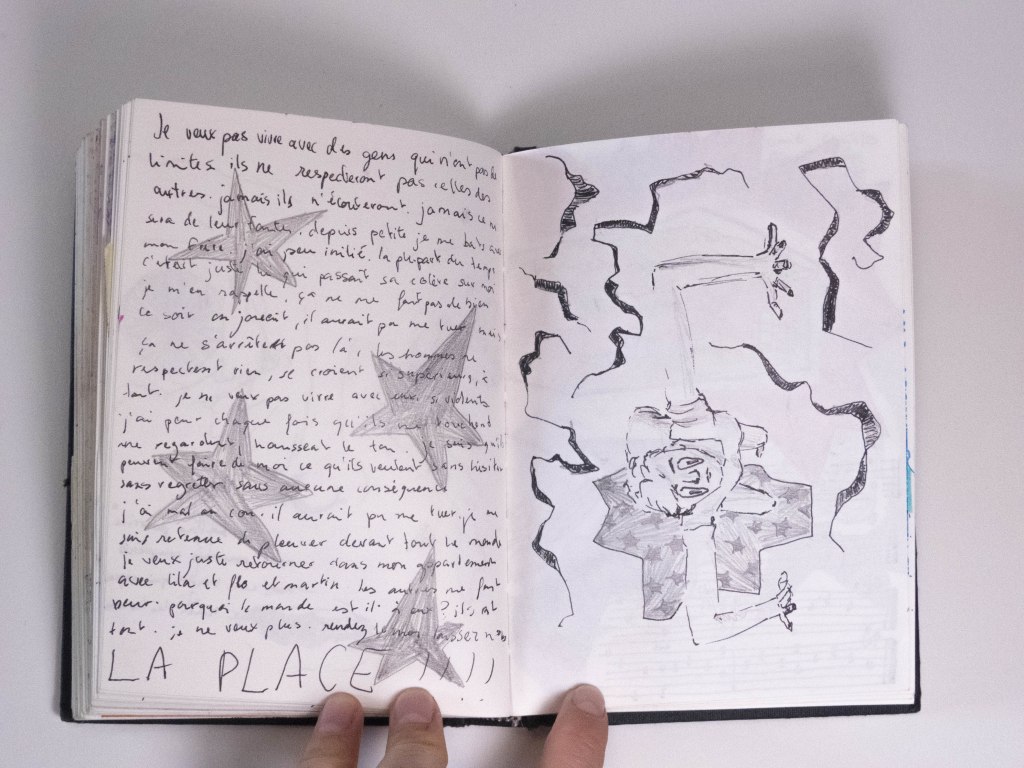 Je veux pas vivre avec des gens qui n'ont pas de
limites ils ne respecteront pas celles des
autres. jamais ils n'écouteront jamais ce
sera de leur fautes, depuis petite je me bats avec
mon frère, un peu imité. la plupart du temps
c'était juste lui qui passait sa colère sur moi
je m'en rappelle, ça ne me fait pas de bien
ce soir on jouait, il aurait pu me tuer, mais
ça ne s'arrêtent pas là, les hommes ne
respectent rien, se croient si supérieurs, à
tout. je ne veux pas vivre avec eux si violents
j'ai peur chaque fois qu'ils me touchent
me regardent, haussent le ton je sais qu'il
peuvent faire de moi ce qu'ils veulent sans hésiter
sans regretter sans aucune conséquence
j'ai mal au cou il aurait pu me tuer, je me
suis retenue de pleurer devant tout le monde
Je veux juste retourner dans mon appartement
avec lila et flo et martin les autres me font
peur. parquoi le monde est il à eux ? ils ont
tout. je ne veux plus. rendez le moi laissez n%
LA PLACE !!!!